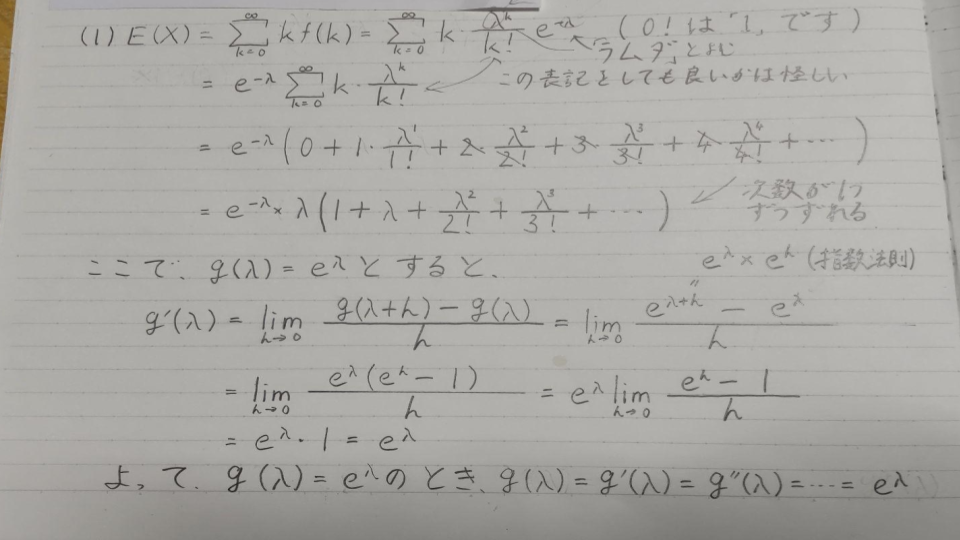 (1) E(X) = Σ_{k=0}^{∞} k f(k) = Σ_{k=0}^{∞} k · λ^k/k! e^{-λ} (0!は「1」です)
ラムダとよむ
= e^{-λ} Σ_{k=0}^{∞} k · λ^k/k! この表記としても良いかは怪しい
= e^{-λ} (0 + 1 · λ^1/1! + 2 · λ^2/2! + 3 · λ^3/3! + 4 · λ^4/4! + ...)
= e^{-λ} × λ (1 + λ + λ^2/2! + λ^3/3! + ...) 次数が1つ
ずつずれる
ここで、g(λ) = e^λ とすると、 e^λ × e^h (指数法則)
g'(λ) = lim_{h→0} (g(λ+h) - g(λ))/h = lim_{h→0} (e^{λ+h} - e^λ)/h
= lim_{h→0} e^λ(e^h - 1)/h = e^λ lim_{h→0} (e^h - 1)/h
= e^λ · 1 = e^λ
よって、g(λ) = e^λ のとき、g(λ) = g'(λ) = g''(λ) = ... = e^λ